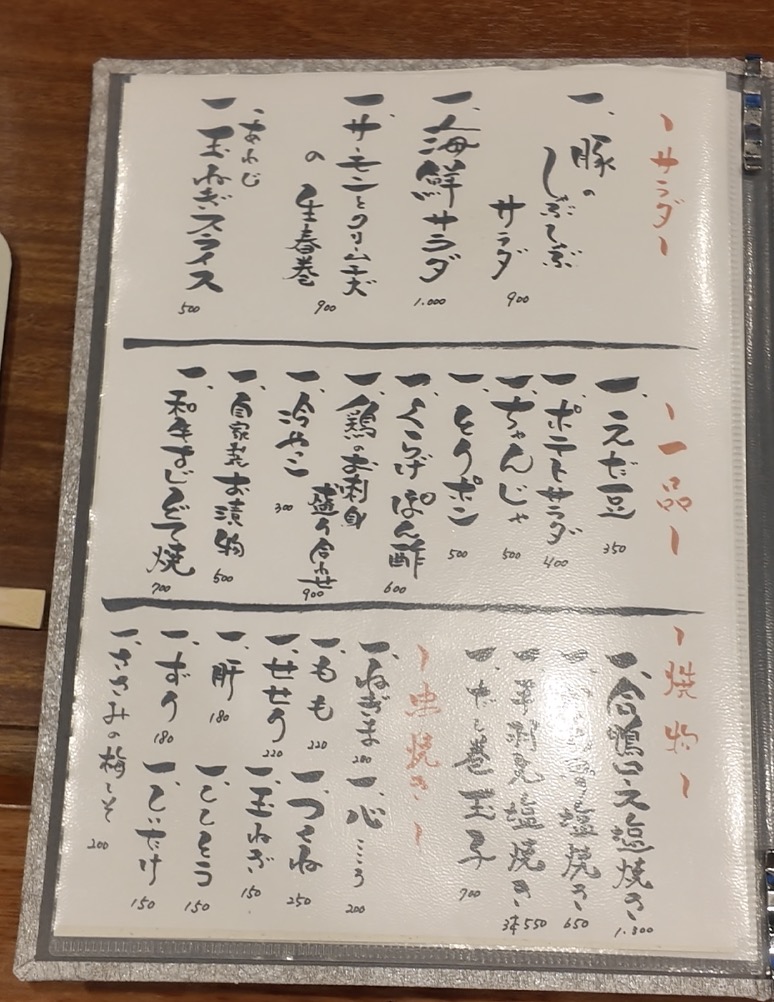 ～サラダ～
一、豚の
しゃぶしゃぶ
サラダ
900
一、海鮮サラダ
1.000
一、サーモンとクリームチーズ
の生春巻
900
あわじ
一、玉ねぎスライス
500
～一品～
一、えだ豆
350
一、ポテトサラダ
400
一、ちゃんじゃ
500
一、とりポン
500
一、くらげぽん酢
600
一、鶏のお刺身
盛り合わせ
900
一、冷やっこ
300
一、自家製お漬物
500
一、和牛すじどて焼
700
～焼物～
一、合鴨ロース塩焼き
1.300
塩焼き
650
一、手羽先塩焼き
3本550
一、だし巻玉子
700
～串焼き～
一、ねぎま
200
一、もも
220
一、せせり
220
一、肝
180
一、ずり
180
一、ささみの梅しそ
200
一、心こころ
200
一、つくね
250
一、玉ねぎ
150
一、ししとう
150
一、しいたけ
150